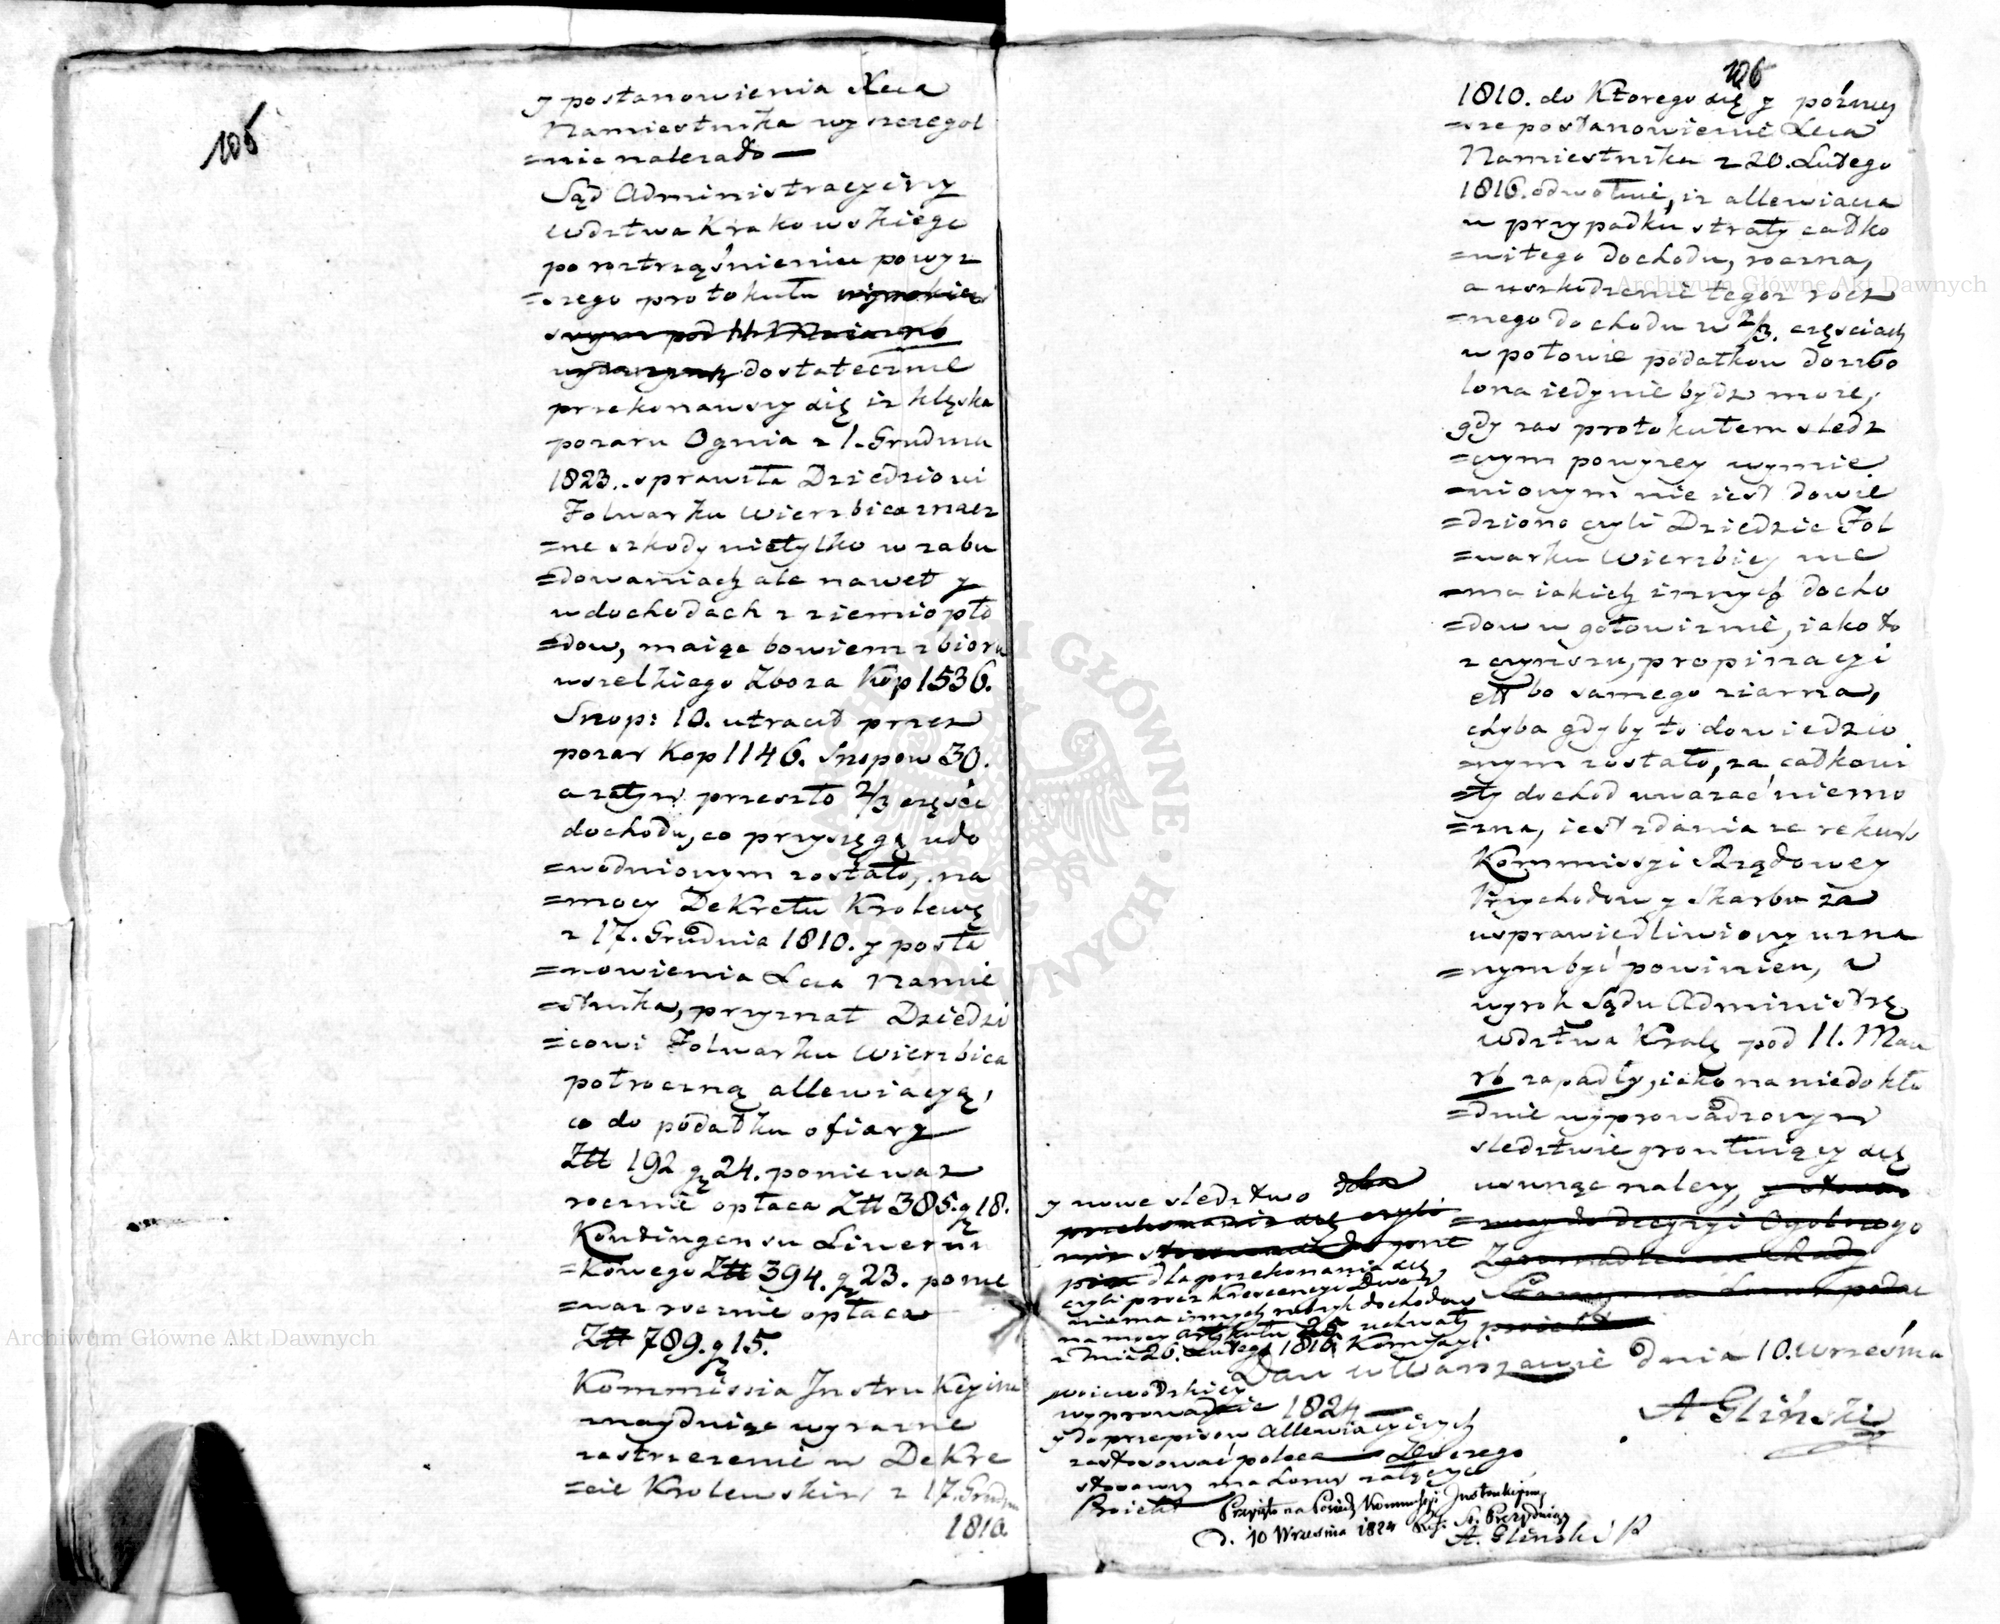 105
y postanowienia Xcia
Namiestnika wyszczegol
=nie należało —
Sąd Administracyiny
Wdztwa Krakowskiego
po roztrząśnieniu powyż
=szego protokułu
dostatecznie
przekonawszy się iż klęska
pożaru Ognia z 1. Grudnia
1823. sprawiła Dziedzicowi
Folwarku Wierzbica znacz
=ne szkody nietylko w zabu
=dowaniach ale nawet y
w dochodach z ziemiopło
=dow, maiąc bowiem zbioru
wszelkiego Zboża Kop 1536.
Snop: 10. utracił przez
pożar Kop 1146. Snopow 30.
a zatym przeszło 2/3 części
dochodu, co przysięgą udo
=wodnionym zostało, na
=mocy Dekretu Krolewę
z 17. Grudnia 1810. y posta
=nowienia Xcia Namie
=stnika, przyznał Dziedzi
=cowi Folwarku Wierzbica
połroczną allewiacyą,
co do podatku ofiary
Ztt 192 g 24. ponieważ
rocznie opłaca Ztt 385. g 18.
Kontingensu Liwerun
=kowego Ztt 394. g 23. ponie
=waż rocznie opłaca
Ztt 789. g 15.
Kommissia Instrukcyina
znayduiąc wyraźne
zastrzeżenie w Dekre
=cie Krolewskim z 17. Grudnia
1810.
106
1810. do Ktorego się y poźniey
=sze postanowienie Xcia
Namiestnika z 20. Lutego
1816. odwołuie, iż allewiacya
w przypadku straty całko
=witego dochodu, roczna,
a uszkodzenie tegoż rocz
=nego dochodu w 2/3. częściach
w połowie podatkow dozwo
lona iedynie bydz może,
gdy zas protokułem sledz
=czym powyżey wymie
=nionym nie iest dowie
=dziono czyli Dziedzic Fol
=warku Wierzbicy nie
=ma iakich innych docho
=dow w gotowiznie, iako to
z czynszu, propinacyi
albo samego ziarna,
chyba gdyby to dowiedzio
=nym zostało, za całkowi
=ty dochod uważać niemo
=żna, iest zdania że rekurs
Kommissyi Rządowey
Przychodow y Skarbu za
usprawiedliwiony uzna
=nym być powinien, a
wyrok Sądu Administrę
Wdztwa Krakę pod 11. Maia
rb zapadły, iako na niedokła
=dnie wyprowadzonym
sledztwie gruntuiący się
usunąc należy,
y nowe sledztwo
dla przekonania się,
czyli procz Krescencyi Dwor
niema innych rubryk dochodow
na mocy Artykułu 25 uchwały
z Dnia 26. Lutego 1816. Kommissyi
Woiewodzkiey
wyprowadzic
y do przepisow Allewiacyinych
zastosować poleca — Do czego
stosowny ma honor załączyć
Proiekt
Dan w Warszawie dnia 10. Września
1824
A Gliński
Przyięto na Posiedz. Kommissyi Instrukcyiney
d. 10 Września 1824
A. Gliński
Archiwum Główne Akt Dawnych
Archiwum Główne Akt Dawnych
ARCHIWUM GŁÓWNE AKT DAWNYCH